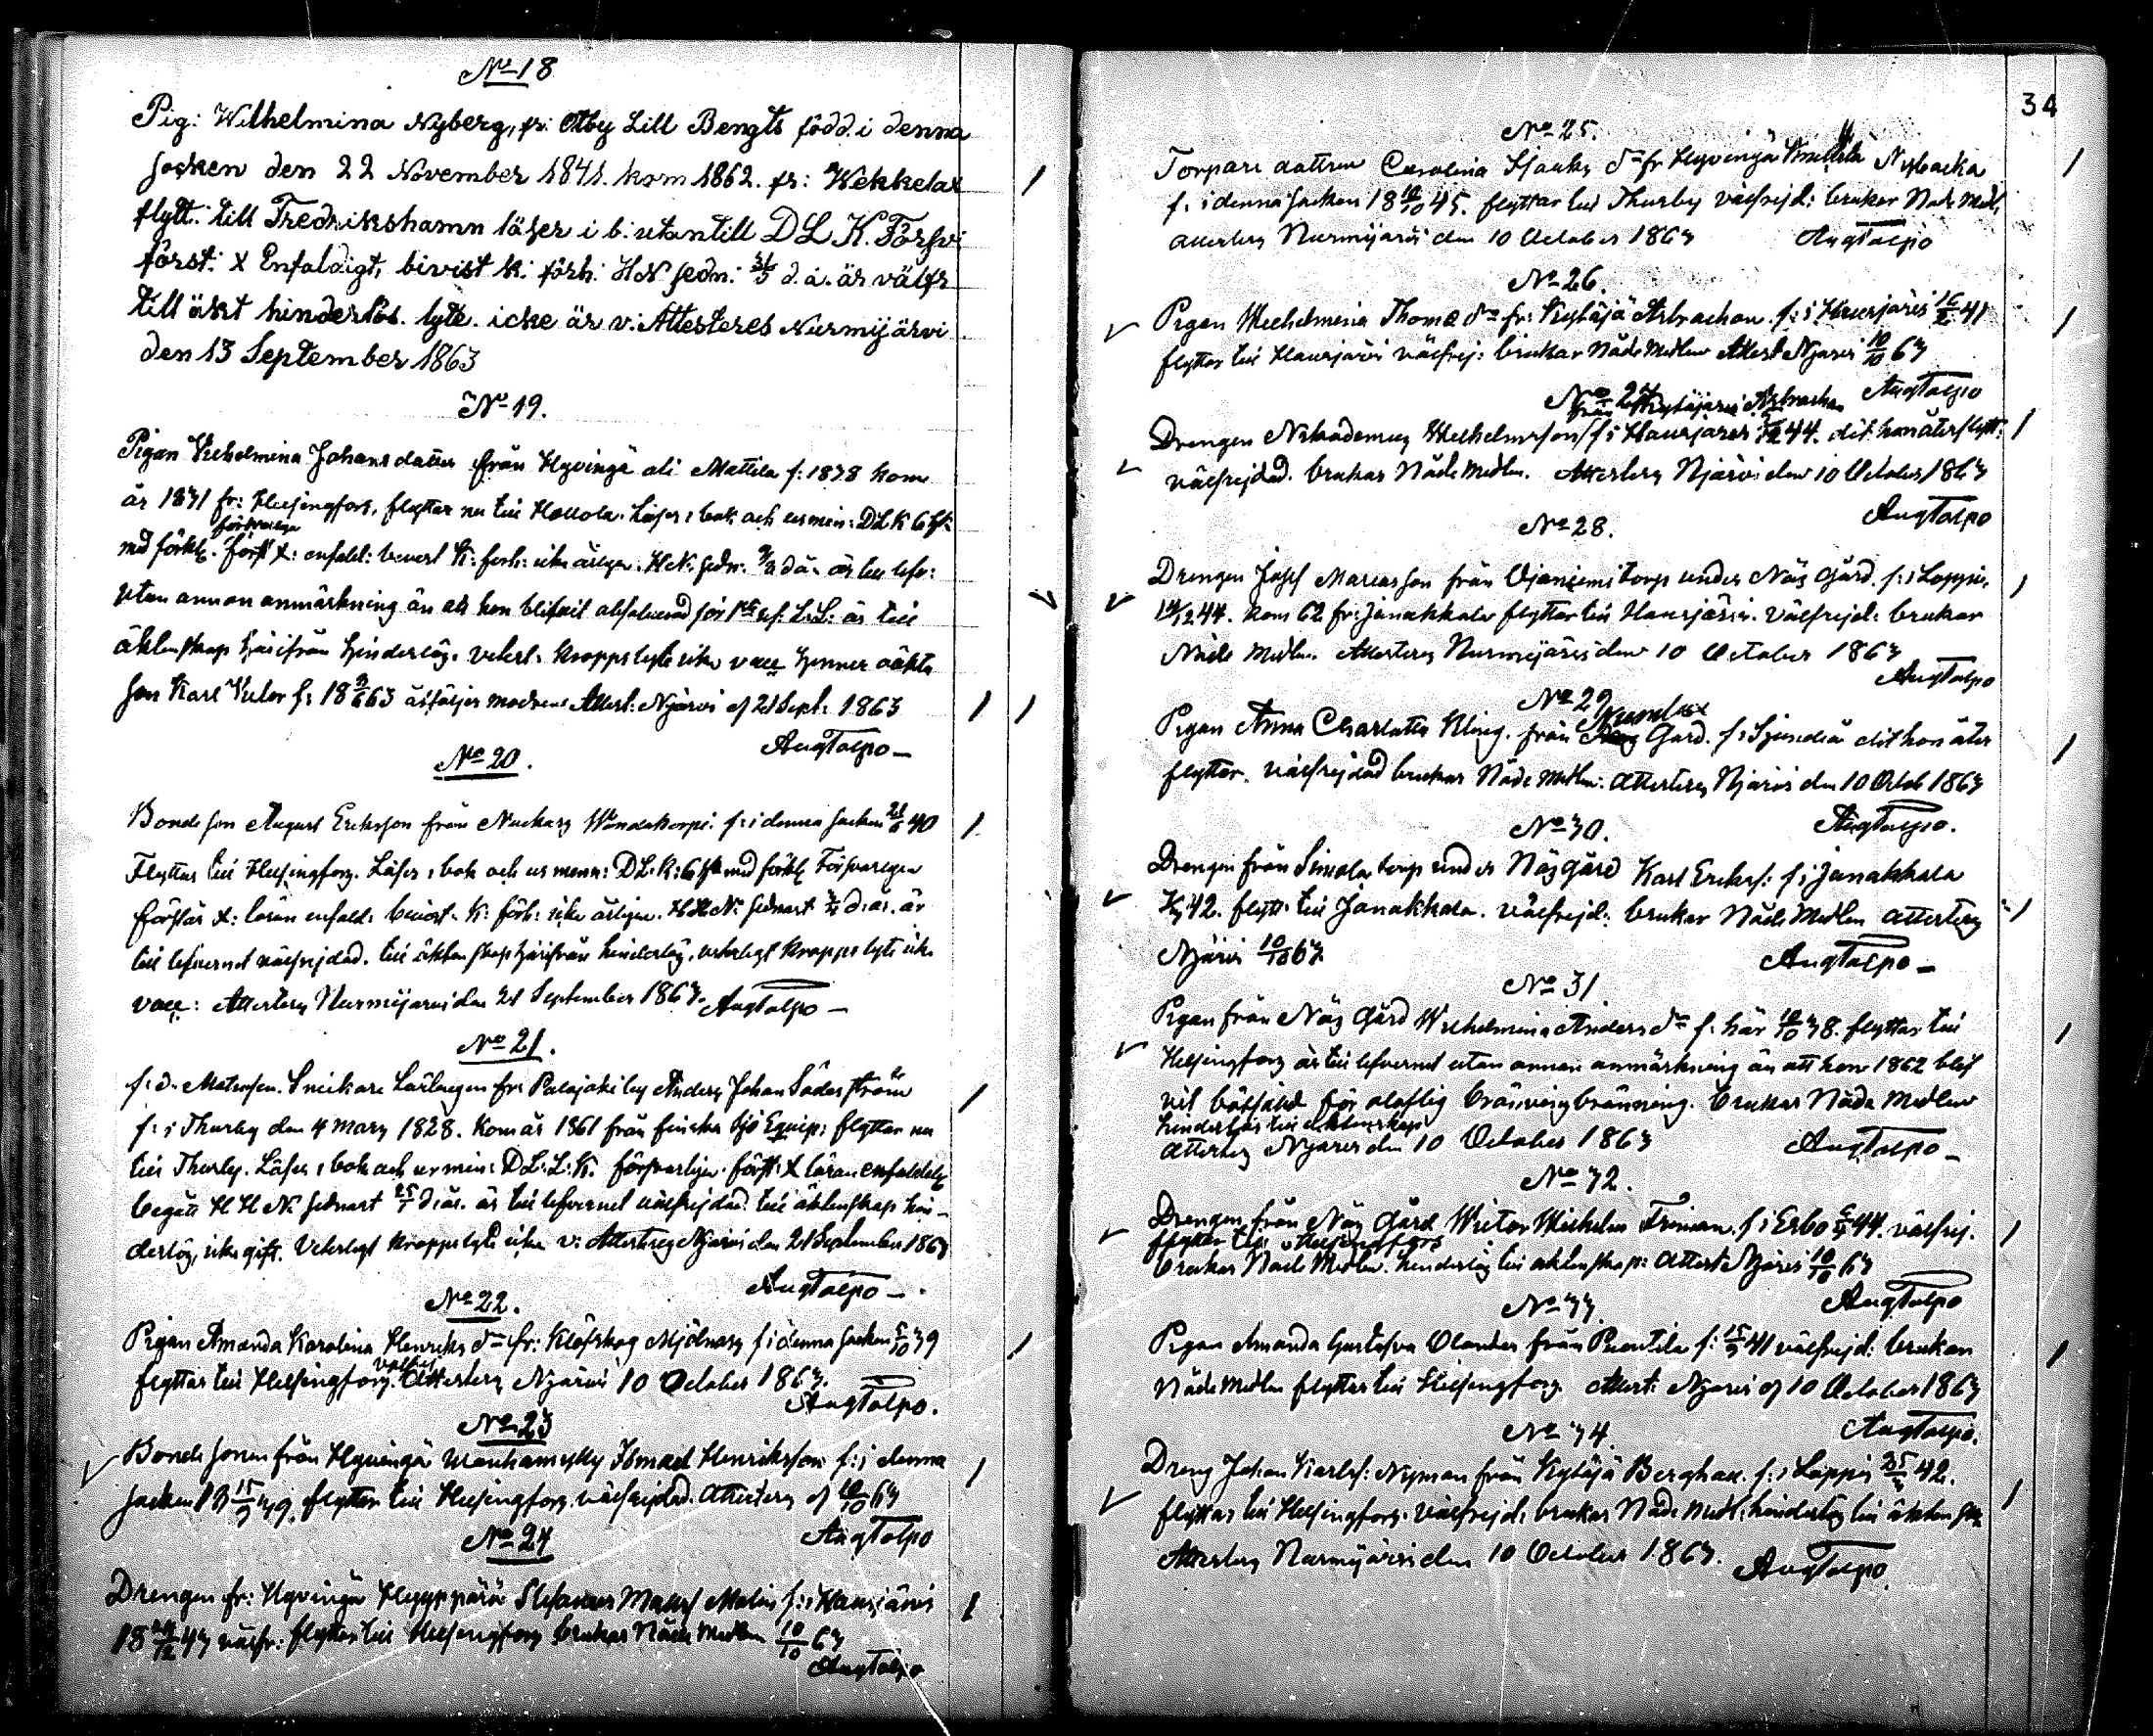 No 18
Pig: Wilhelmina Nyberg, fr: Lill Bengts född i denna
socken den 22 November 1841. kom 1862. fr: Wekkelax
flytt: till Fredrikshamn läser i b: utantill D L K. Försv:
först: x Enfaldigt, bivist k: förh: HN sedn: d. å. är välfr
till äkt hinderlös. lyte. icke är v: Attesteres Nurmijärvi
den 13 September 1863
No 19.
Pigan Vilhelmina Johansdatter från Hyvinge ali Mattila f: 1838 kom
år fr: Helsingfors, flyttar nu till Hollola. Läser i bok och ur min: D L K 6 Hfst
med förkl. försvarligen först x: enfald: bevist K: förh: icke årligen. H N: sedn. d å. är till lefv:
utan annan anmärkning än att hon blifvit absolverad för 1sta L.S: är till
äktenskap härifrån hinderlös. vederl. kroppslyte icke vacc hennes oäkta
son Karl f: 18 63 åtföljer modren. Attest: Njärvi d 21 Sept. 1863
AugTalpo —
No 20.
Bonde son August Eriksson från Nuckars f: i denna socken 40
Flyttar till Helsingfors. Läser i bok och ur minn: D L: K: 6 Hfst med förkl Försvarligen
förstår x: läran enfald: bevist. K: förh: icke årligen. H H N: sednast d. år. är
till lefvernet välfrejdad. till äktenskap härifrån hinderlös, vederligt kropps lyte icke
vacc: Attesteras Nurmijärvi den 21 September 1863. AugTalpo —
No 21.
f: d. Matrosen. Snickare Lärlingen fr: Palojoki by Anders Johan Söderström
f: i Thusby den 4 Mars 1828. kom år 1861 från finska Sjö Equip: flyttar nu
till Thusby. Läser i bok och ur min: D L: L: K. försvarligen. först: x läran enfaldeligen
begått H H N: sednast 25 d: år. är till lefvernet välfrejdad. till äktenskap hin-
derlös, icke gift. Vederligt kroppslyte icke v: Attesteras Njärvi den 21 September 1863
AugTalpo —
No 22.
Pigan Amanda Karolina Henriks dr fr: Klöfskog Mjölnars f: i denna socken 5/10 39
flyttar till Helsingfors. välfrejd Attesteras Njärvi 10 October 1863.
AugTalpo.
No 23
Bonde sonen från Hyvinge Ismael Henriksson f: i denna
socken 18 15 39. flyttar till Helsingfors. välfrejdad. Attesteras d 10/10 63
AugTalpo
No 24
Drengen fr: Hyvinge Matss Malin f: i Hausjärvi
18 43 välfr: flyttar till Helsingfors brukar Nåde Medlen 10/10 63
AugTalpo
34
No 25.
Torpare dattren Carolina dr fr Hyvingä Nybacka
f. i denna socken 18 10 45. flyttar till Thusby välfrejd: brukar Nåde Medl
Attesteras Nurmijärvi den 10 October 1863 AugTalpo
No 26.
Pigan Wilhelmina Thomæ dr fr: Kytäjä f: i Hausjärvi 16/2 41
flyttar till Hausjärvi välfrej: brukar Nåde Medlen Attest Njärvi 10/10 63
AugTalpo
No 27
från Kytäjärvi
Drengen Nikodemus Wilhelmsson f: i Hausjärvi 44. dit han återflytt:
välfrejdad. brukar Nåde Medlen. Attesteras Njärvi den 10 October 1863
AugTalpo
No 28.
Drengen Josef Mariasson från Ojaniemi torp under Näs Gård. f: i Loppis.
12 44. kom 62 fr: Janakkala flyttar till Hausjärvi. Välfrejd: brukar
Nåde Medlen. Attesteras Nurmijärvi den 10 October 1863
AugTalpo
No 29
Pigan Anna Charlotta Kling. från Numlax Gård. f: i Sjundeå dit hon åter
flyttar. välfrejdad brukar Nåde Medlen: Attesteras Njärvi den 10 Octob 1863
AugTalpo.
No 30.
Drengen från torp under Näs gård Karl Eriks: f: i Janakkala
42. flytt: till Janakkala. välfrejd: brukar Nåde Medlen Attesteras
Njärvi 10/10 63
AugTalpo —
No 31
Pigan från Näs Gård Wilhelmina Anders dr f. här 10 38. flyttar till
Helsingfors är till lefvernet utan annan anmärkning än att hon 1862 blef
vit bötfäld för olaflig bränvinsbränning. brukar Nåde Medlen
hinderlös till äktenskap
Attesteras Njärvi den 10 October 1863 AugTalpo —
No 32.
Drengen från Näs Gård Wictor Wilhelm Friman. f: i Esbo 44. välfrej.
flyttar till Helsingfors
brukar Nåde Medlen. hinderlös till äktenskap: Attest Njärvi 10/10 63
AugTalpo
No 33.
Pigan Amanda Gustafva Olander från f: 15 41 välfrejd: brukar
Nåde Medlen flyttar till Helsingfors. Attest: Njärvi d 10 October 1863
AugTalpo.
No 34.
Dreng Johan Karls: Nyman från Kytäjä f: i Loppis 25 42.
flyttar till Helsingfors. välfrejd: brukar Nåde Medl: hinderlös till äktensk
Attesteras Nurmijärvi den 10 October 1863. AugTalpo.